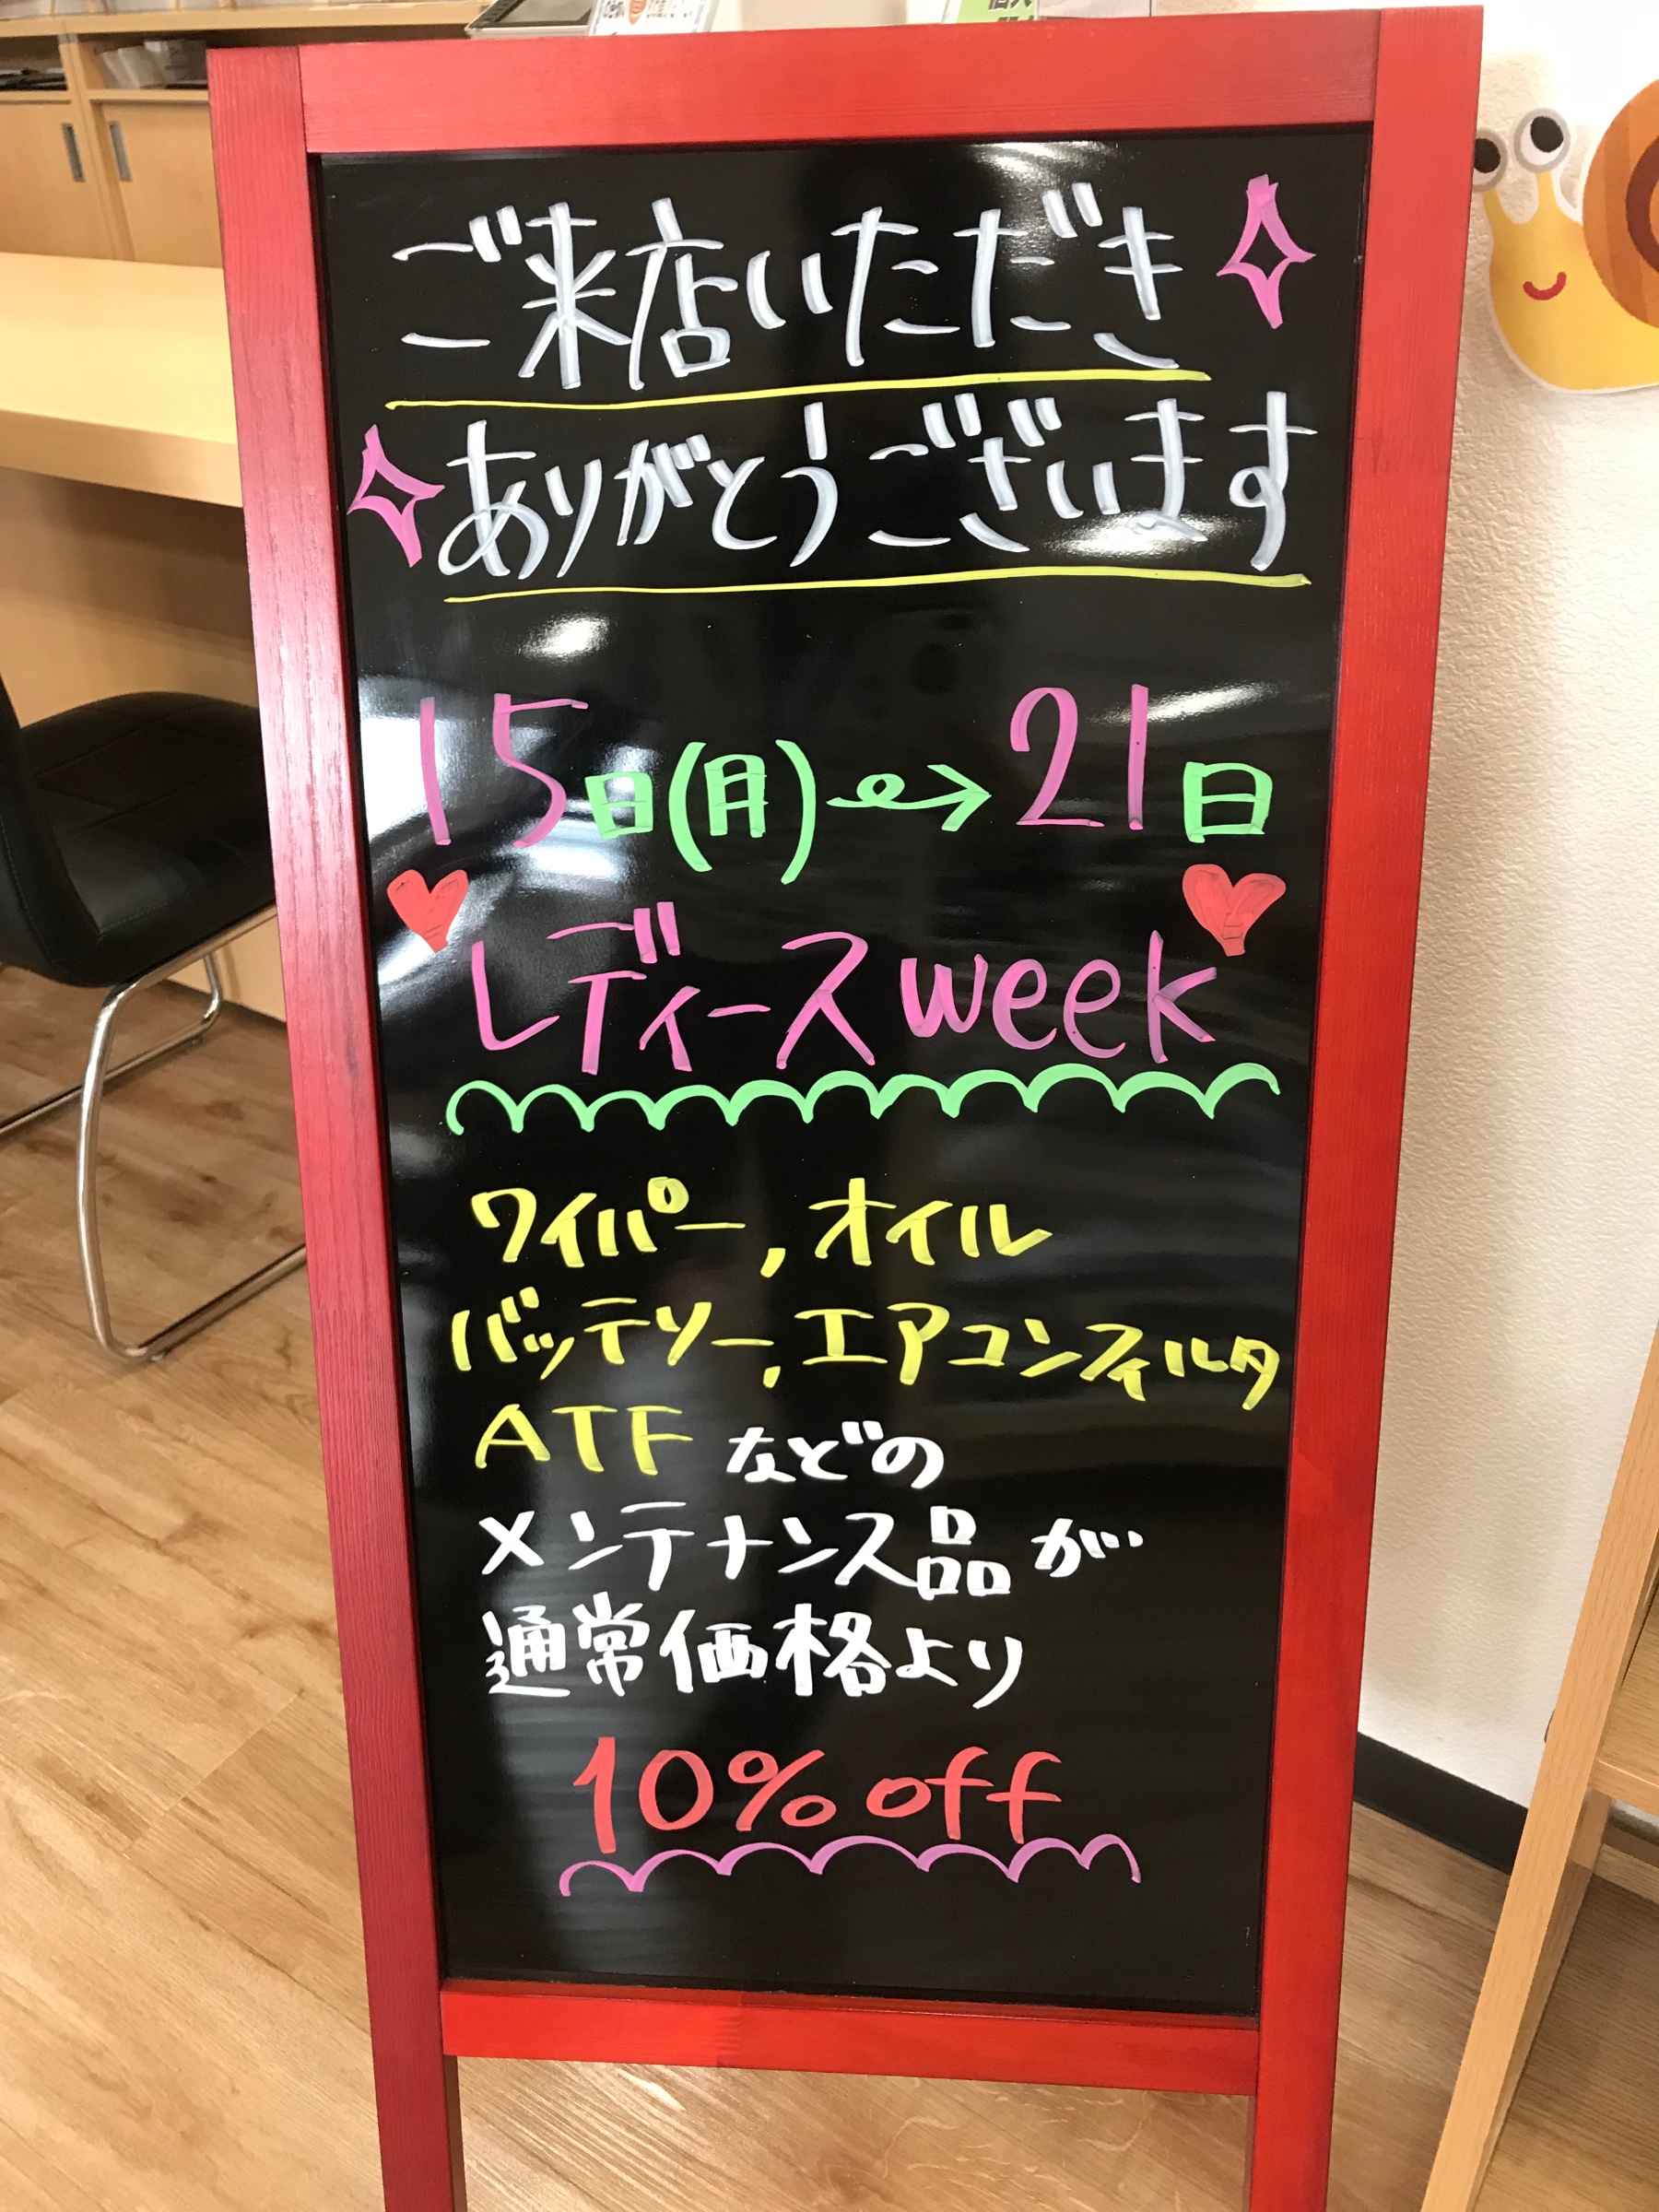 ご来店いただき
ありがとうございます
15日(月)→21日
レディースweek
ワイパー,オイル
バッテリー,エアコンフィルタ
ATFなどの
メンテナンス品が
通常価格より
10%off